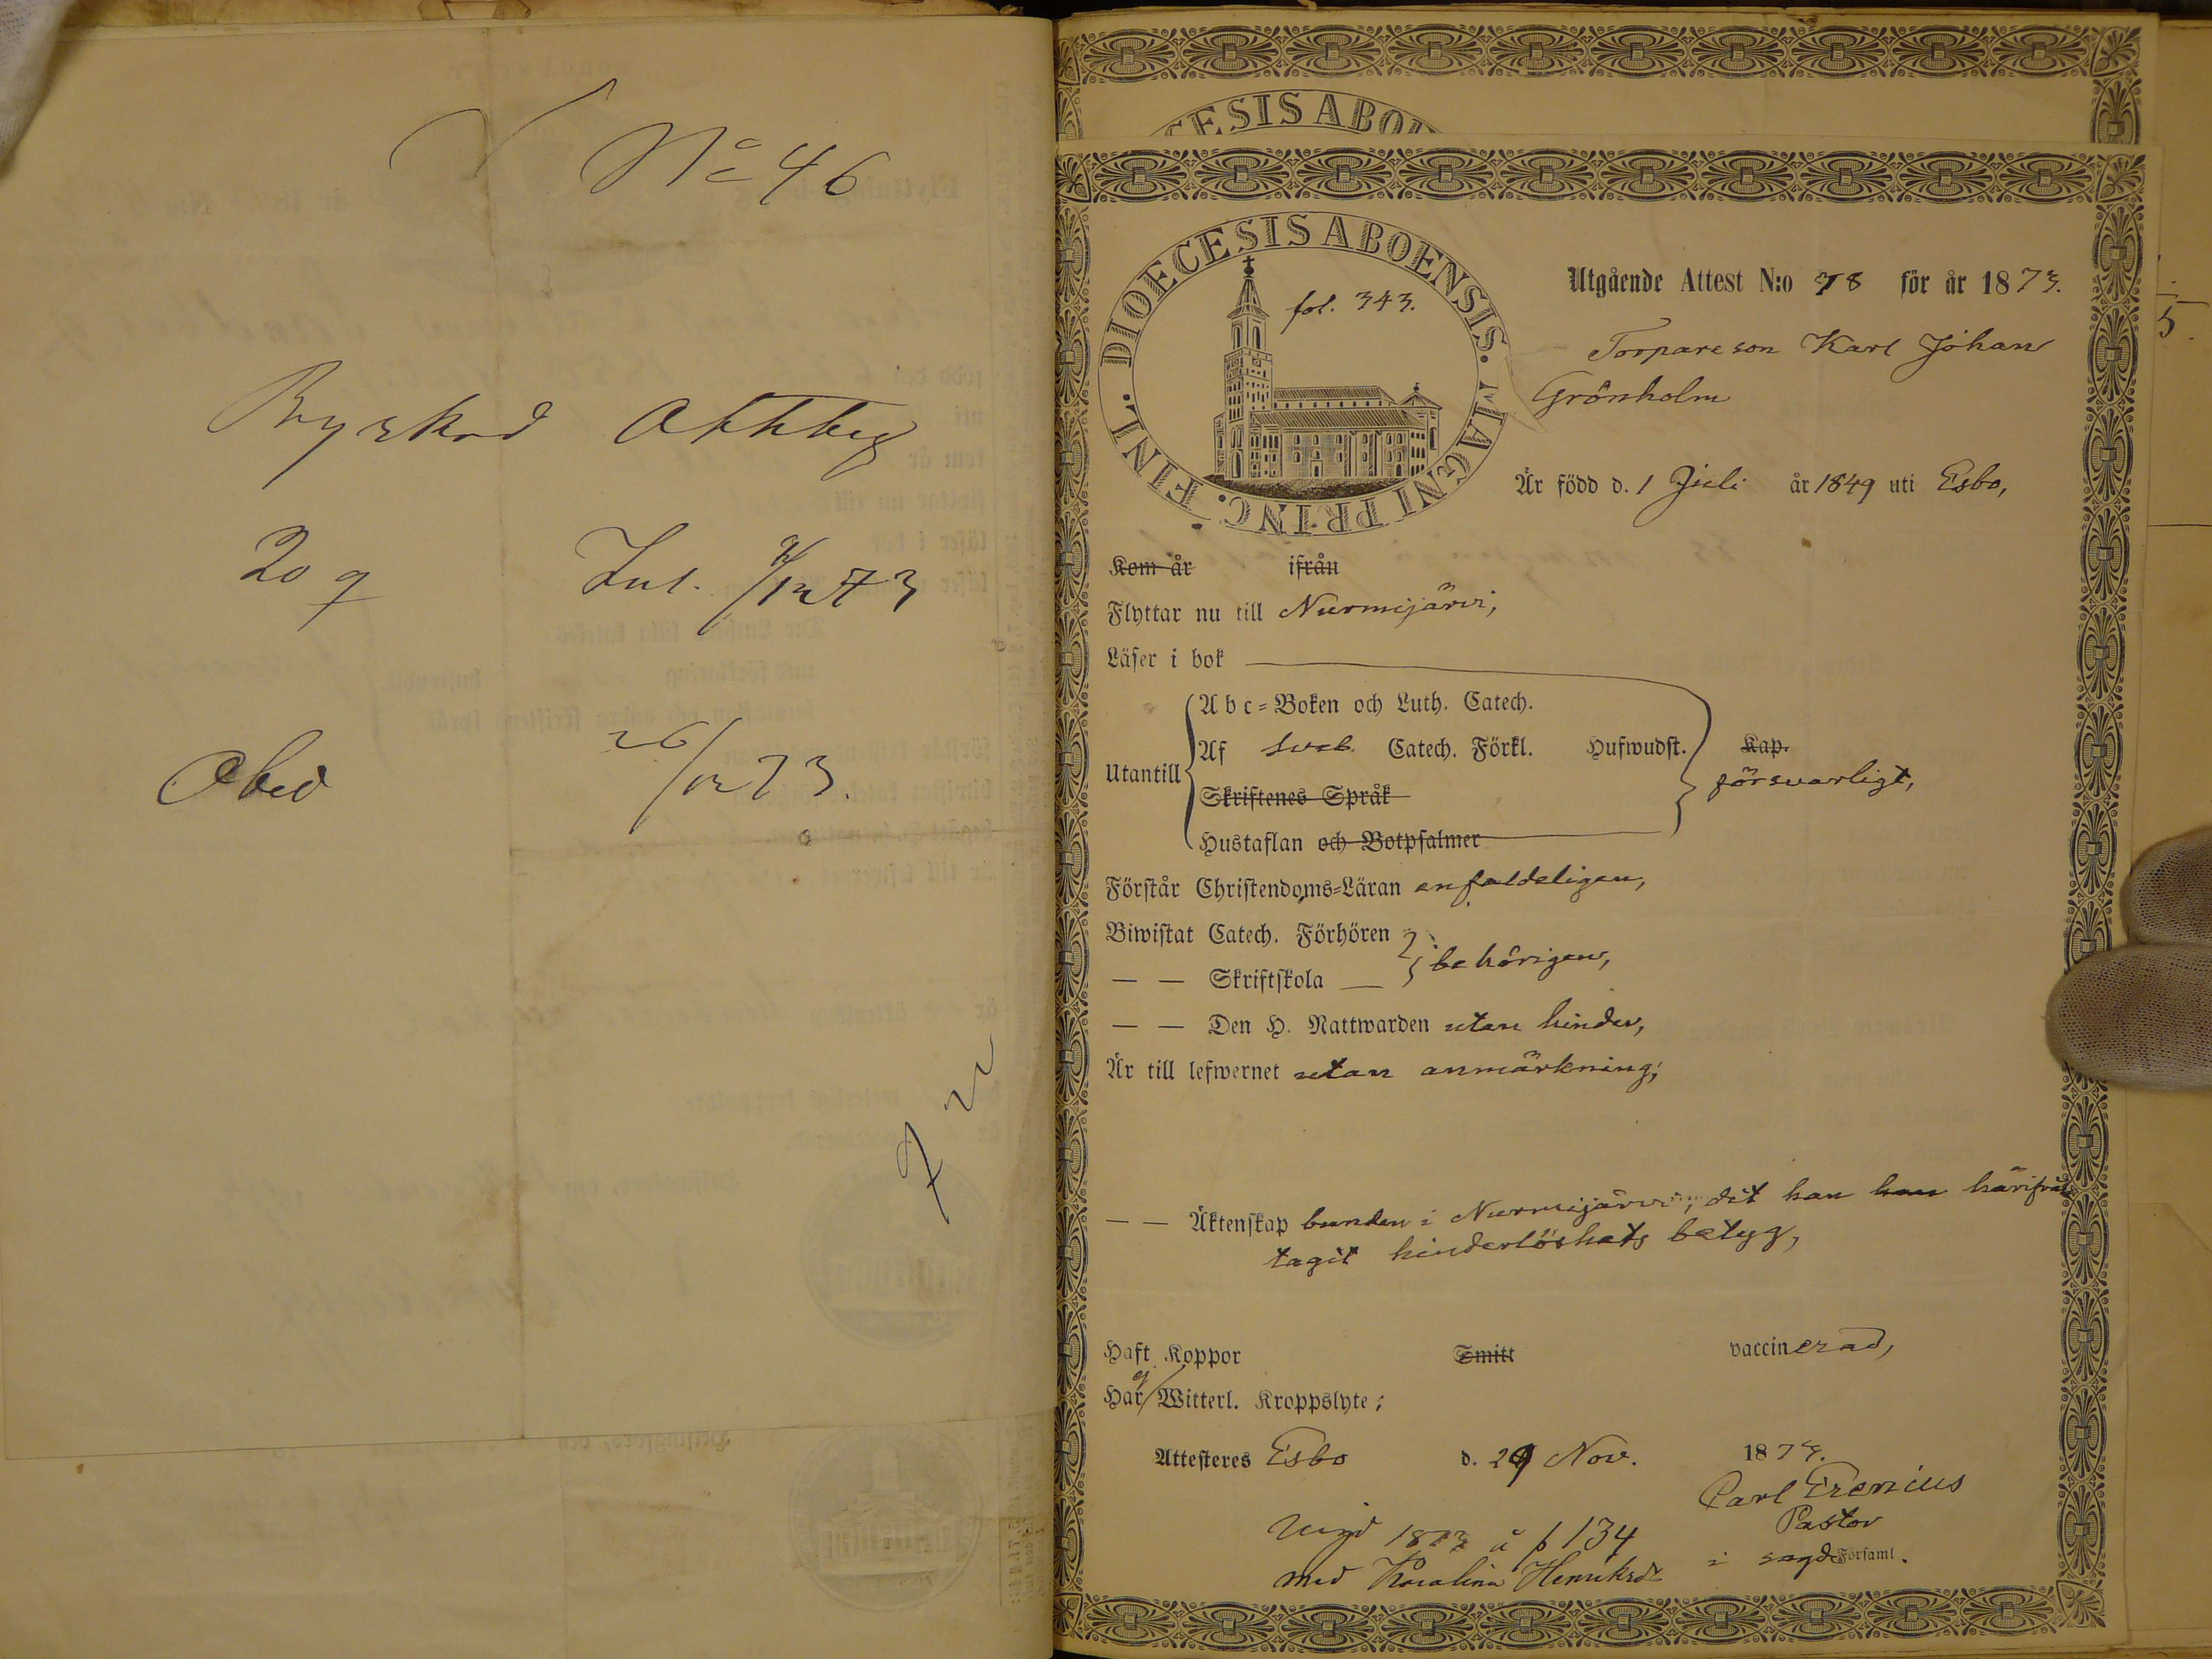 No 46
20 9
26/12 73.
CESIS ABOE
DIOECESIS ABOENSIS. MAGNI PRINC. FINL.
fol. 343.
Utgående Attest N:o 78 för år 1873.
Torpareson Karl Johan
Grönholm
Är född d. 1 Juli år 1849 uti Esbo,
Kom år ifrån
Flyttar nu till Nurmijärvi,
Läser i bok
Utantill
A b c=Boken och Luth. Catech.
Af Sveb. Catech. Förkl. Hufwudst. Kap.
försvarligt,
Skriftenes Språk
Hustaflan och Botpsalmer
Förstår Christendoms=Läran enfaldeligen,
Biwistat Catech. Förhören
behörigen,
— — Skriftskola —
— — Den H. Nattwarden utan hinder,
Är till lefwernet utan anmärkning;
— — Äktenskap bunden i Nurmijärvi, dit han han härifrån
tagit hinderlöshets betyg,
Haft Koppor Smitt vaccinerad,
Har ej Witterl. Kroppslyte;
Attesteres Esbo d. 29 Nov. 1873.
Carl Frenius
Pastor
i sagde Församl.
Vigd 1873 å p 134
med Rosalina Henriksdr